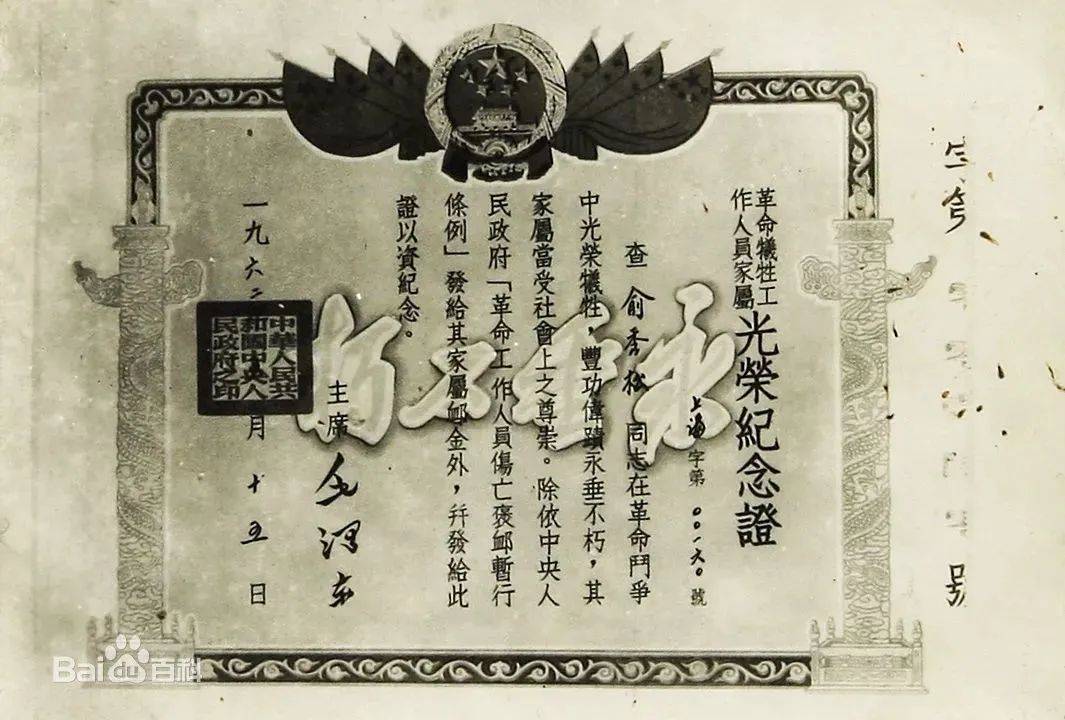 革命犧牲工
作人員家屬
光榮紀念證
上海字第〇〇一六〇號
查俞秀松同志在革命鬥爭
中光榮犧牲，豐功偉蹟永垂不朽，其
家屬當受社會上之尊崇。除依中央人
民政府「革命工作人員傷亡褒卹暫行
條例」發給其家屬卹金外，幷發給此
證以資紀念。
永垂不朽
主席 毛澤東
一九六二
月十五日
中華人民共
和國中央人
民政府之印
號
Baidu百科